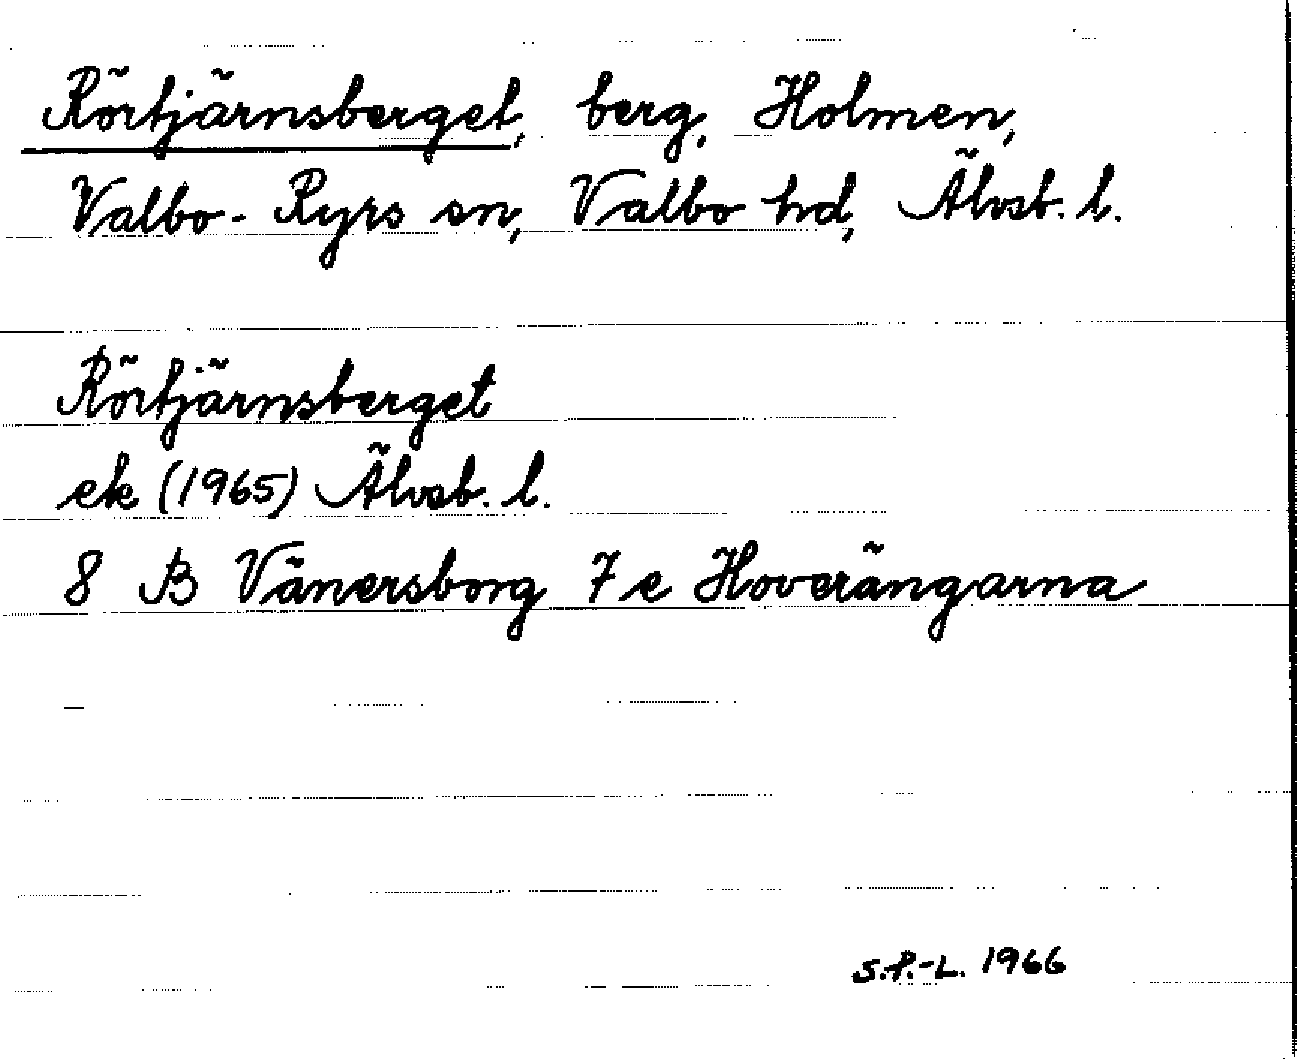 Rörtjärnsberget, berg, Holmen,
Valbo-Ryrs sn, Valbo hd, Älvsb. l.
Rörtjärnsberget
ek (1965) Älvsb. l.
8 B Vänersborg 7 e Hoverängarna
S.P.-L. 1966